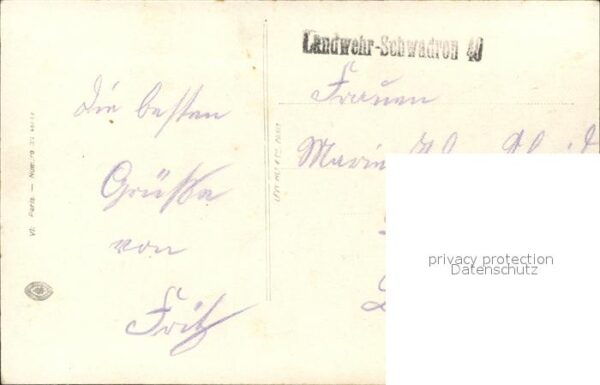 Landwehr-Schwadron 40
Die besten
Grüße
von
Fritz
Frauen
Marie
privacy protection
Datenschutz